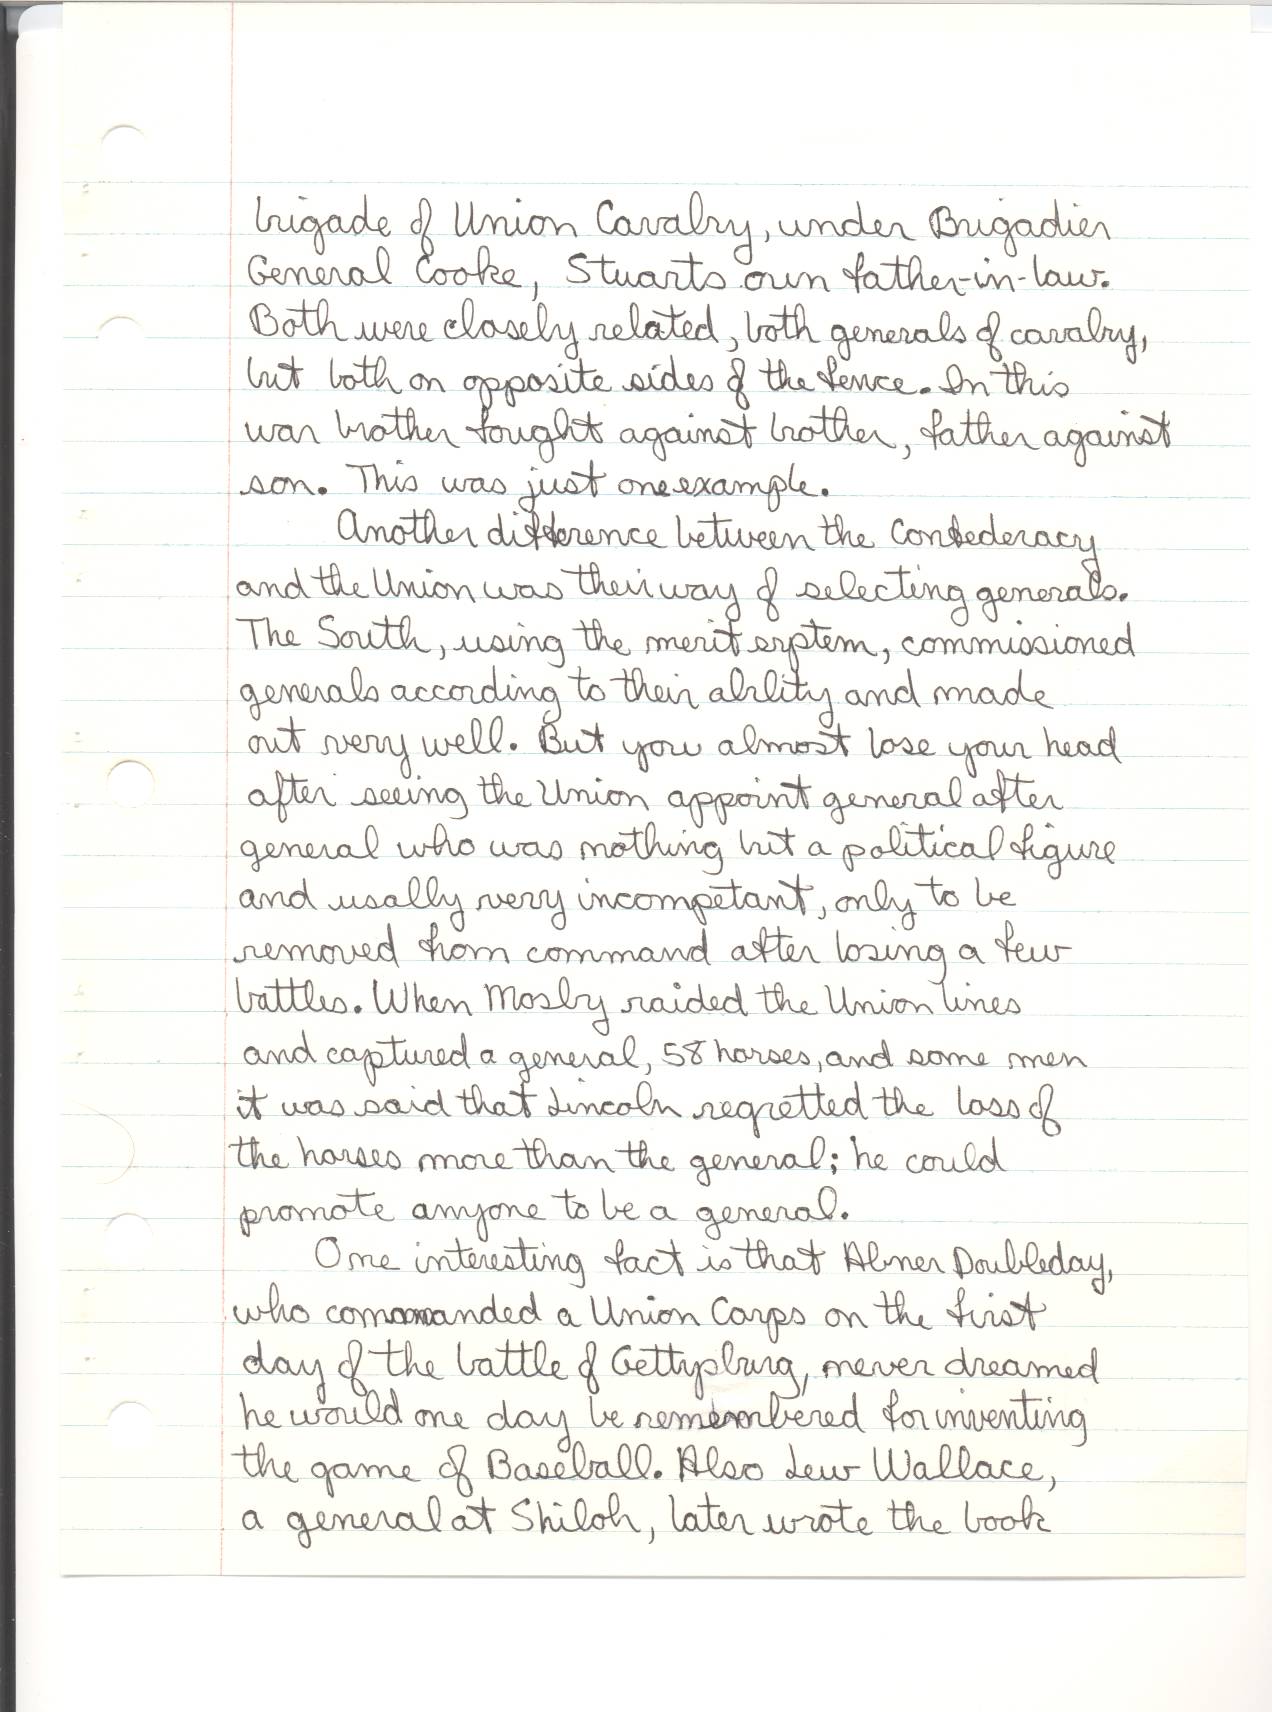 brigade of Union Cavalry, under Brigadier
General Cooke, Stuarts own father-in-law.
Both were closely related, both generals of cavalry,
but both on opposite sides of the fence. In this
war brother fought against brother, father against
son. This was just one example.
Another difference between the Confederacy
and the Union was their way of selecting generals.
The South, using the merit system, commissioned
generals according to their ability and made
out very well. But you almost lose your head
after seeing the Union appoint general after
general who was nothing but a political figure
and usally very incompetant, only to be
removed from command after losing a few
battles. When Mosby raided the Union lines
and captured a general, 58 horses, and some men
it was said that Lincoln regretted the loss of
the horses more than the general; he could
promote anyone to be a general.
One interesting fact is that Abner Doubleday,
who commanded a Union Corps on the first
day of the battle of Gettysburg, never dreamed
he would one day be remembered for inventing
the game of Baseball. Also Lew Wallace,
a general at Shiloh, later wrote the book